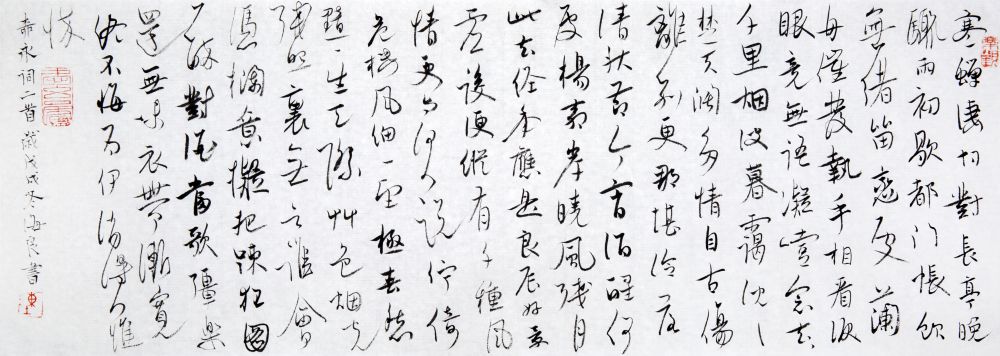 寒蟬淒切對長亭晚
驟雨初歇都门帳飲
無緒留戀處蘭
舟催發執手相看淚
眼竟無語凝噎念去
千里烟波暮靄沈沈
楚天闊多情自古傷
離别更那堪冷落
清秋節今宵酒醒何
處楊柳岸曉風殘月
此去経年應是良辰好景
虛設便縱有千種風
情更与何人說佇倚
危楼風細細望極春愁
黯黯生天際艸色烟光
殘照裏無言誰會
憑欄意擬把疎狂圖
一醉對酒當歌彊樂
還無味衣帶漸寬
終不悔為伊消得人憔
悴
柳永詞二首歲戊戌冬海良書